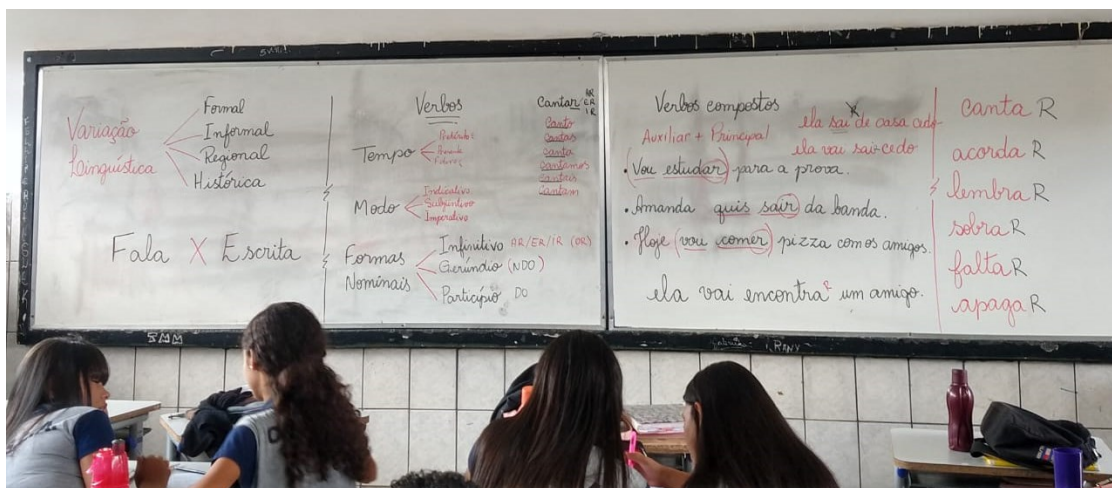 Variação
Linguística
Formal
Informal
Regional
Histórica
Fala X Escrita
Verbos
Tempo
Pretérito
Presente
Futuro
Modo
Indicativo
Subjuntivo
Imperativo
Formas
Nominais
Infinitivo AR/ER/IR (OR)
Gerúndio (NDO)
Particípio DO
Cantar
AR
ER
IR
Canto
Cantas
Canta
Cantamos
Cantais
Cantam
Verbos compostos
Auxiliar + Principal
(Vou estudar) para a prova.
• Amanda quis sair da banda.
• Hoje (vou comer) pizza com os amigos.
ela vai encontra R um amigo.
ela sai R de casa cedo
ela vai sair cedo
canta R
acorda R
lembra R
sobra R
falta R
apaga R
5MM